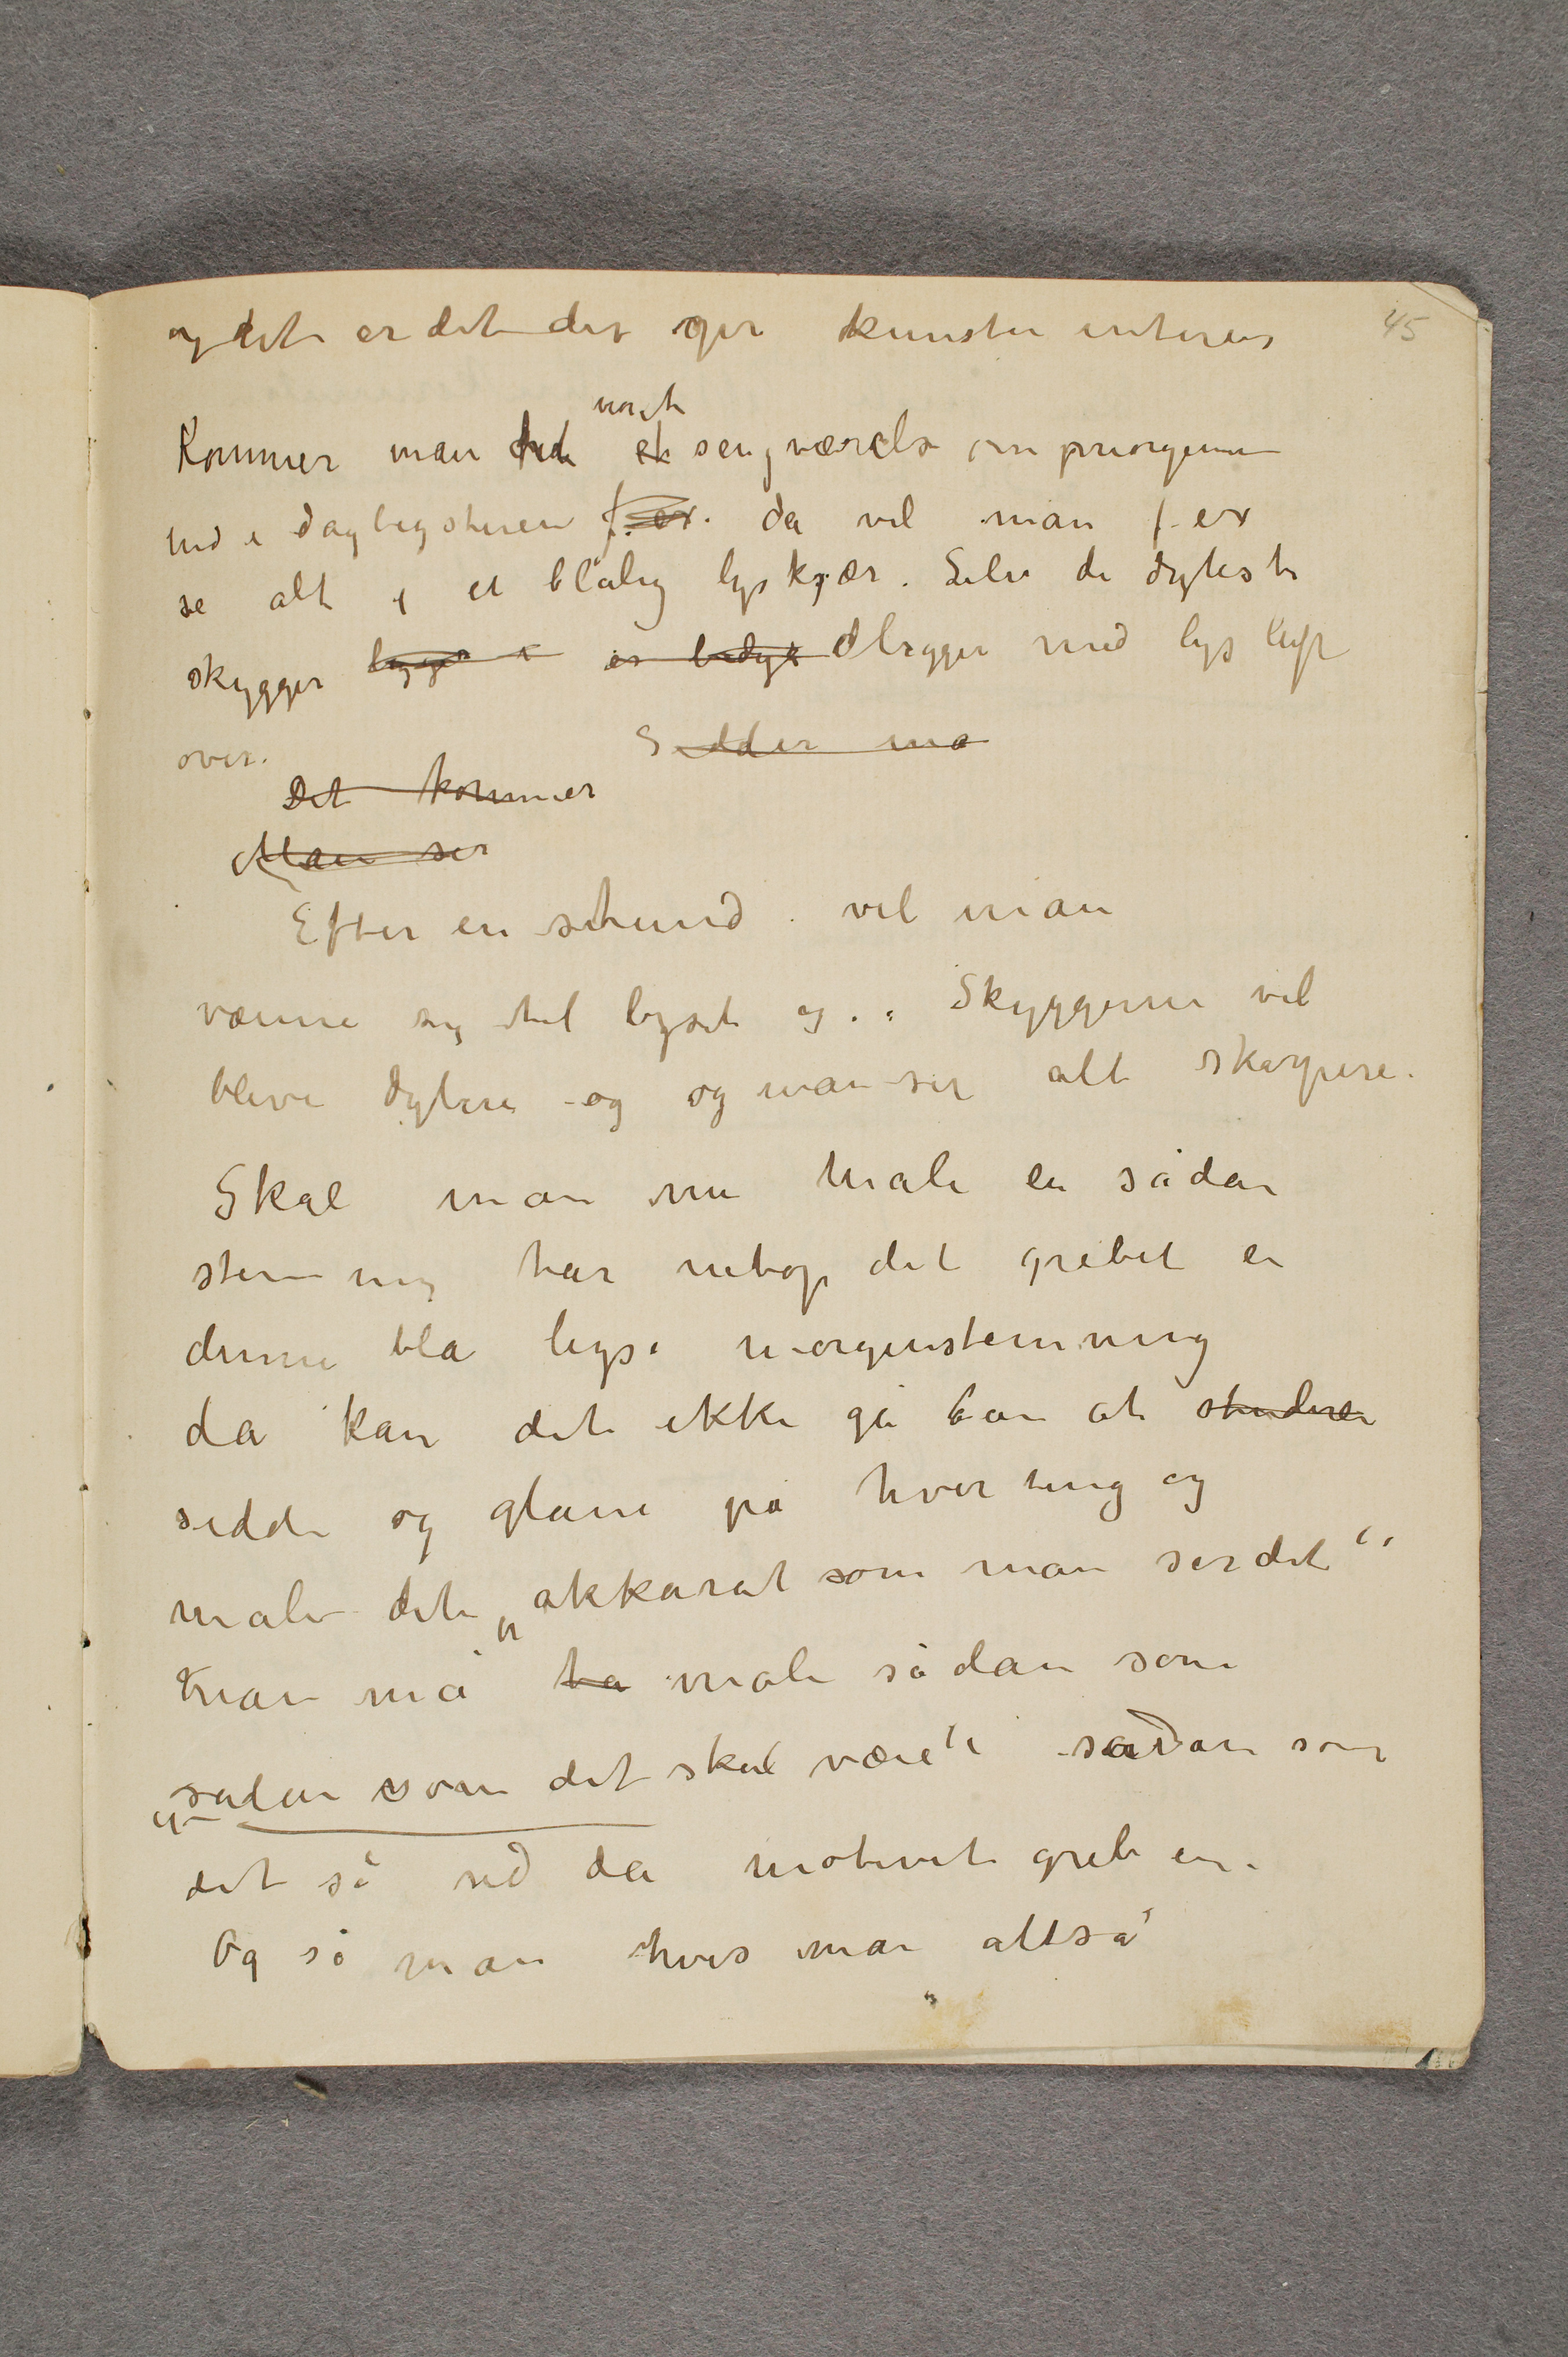 og det er det der gir kunsten interess 45
mørkt
Kommer man fra et sengværelse om morgenen
ind i dagligstuen f. ex. da vil man f. ex
se alt i et blålig lyskjær. Selv de dybeste
skygger ligger i er ligger med lys luft
over. Sidder ma
Det kommer
Man ser
Efter en stund vil man
vænne sig til lyset og Skyggerne vil
blive dybere og og man ser alt skarpere.
Skal man nu male en sådan
stemning har netop det grebet en
denne blå lyse morgenstemning
da kan det ikke gå an at studere
sidde og glane på hver ting og
male det „akkarat som man ser det“
man må ta male sådan som
„sådan som det skal være“ sådan som
det så ud da motivet greb en.
Og så man hvis man altså